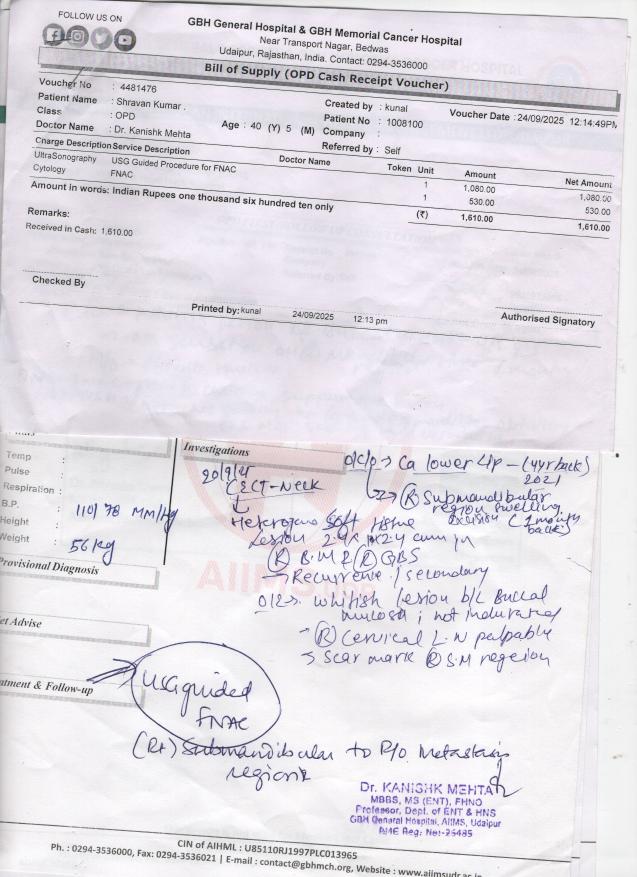 FOLLOW US ON
GBH General Hospital & GBH Memorial Cancer Hospital
Near Transport Nagar, Bedwas
Udaipur, Rajasthan, India. Contact: 0294-3536000
Bill of Supply (OPD Cash Receipt Voucher)
Voucher No : 4481476 Created by : kunal Voucher Date : 24/09/2025 12:14:49PM
Patient Name : Shravan Kumar . Patient No : 1008100
Class : OPD Age : 40 (Y) 5 (M) Company :
Doctor Name : Dr. Kanishk Mehta Referred by : Self
Charge Description Service Description Doctor Name Token Unit Amount Net Amount
UltraSonography USG Guided Procedure for FNAC 1 1,080.00 1,080.00
Cytology FNAC 1 530.00 530.00
Amount in words: Indian Rupees one thousand six hundred ten only (₹) 1,610.00 1,610.00
Remarks:
Received in Cash: 1,610.00
Checked By
Authorised Signatory
Printed by: kunal 24/09/2025 12:13 pm
Temp :
Pulse :
Respiration :
B.P. : 110/78 MM/Hg
Height :
Weight : 56 kg
Provisional Diagnosis
et Advise
atment & Follow-up
Investigations
CECT-Neck
Ca lower Lip - (4yr back)
2021
(R) Submandibular
region swelling
(1 month
back)
Soft tissue
Lesion
(R) (R) GBS
→ Recurrence / secondary
whitish lesion b/l Buccal
mucosa ; not indurated
- (R) Cervical L.N palpable
→ Scar mark (R) S.M region
USG guided
FNAC
(Rt) Submandibular to R/o Metastasis
region
Dr. KANISHK MEHTA
MBBS, MS (ENT), FHNO
Professor, Dept. of ENT & HNS
GBH General Hospital, AIIMS, Udaipur
CIN of AIHML : U85110RJ1997PLC013965
Ph. : 0294-3536000, Fax: 0294-3536021 | E-mail : contact@gbhmch.org, Website : www.aiimsudr.ac.in